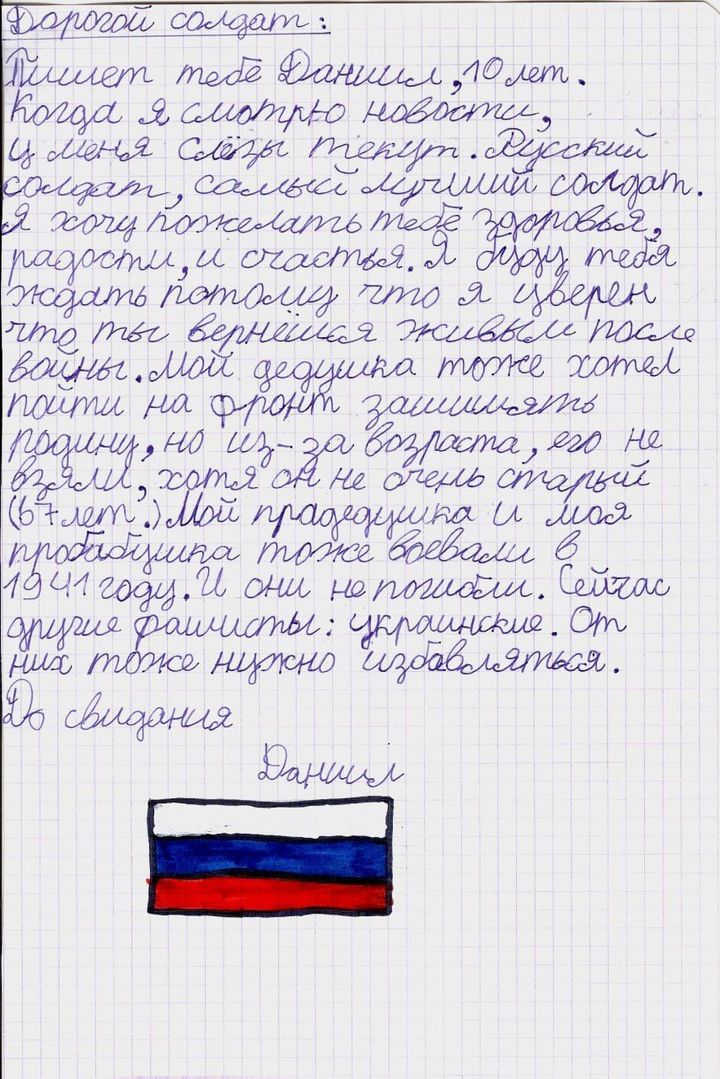 Дорогой солдат:
Пишет тебе Даниил, 10 лет.
Когда я смотрю новости,
у меня слёзы текут. Русский
солдат, самый лучший солдат.
Я хочу пожелать тебе здоровья,
радости, и счастья. Я буду тебя
ждать потому что я уверен
что ты вернёшься живым после
войны. Мой дедушка тоже хотел
пойти на фронт защищять
родину, но из-за возраста, его не
взяли, хотя он не очень старый
(67 лет.) Мой прадедушка и моя
пробабушка тоже воевали в
1941 году. И они не погибли. Сейчас
другие фашисты: украинские. От
них тоже нужно избавляться.
До свидания
Даниил